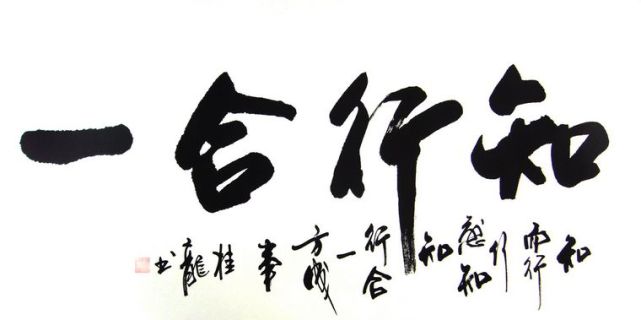 知行合一
知而行行愈知知行合一方成 桂龍书